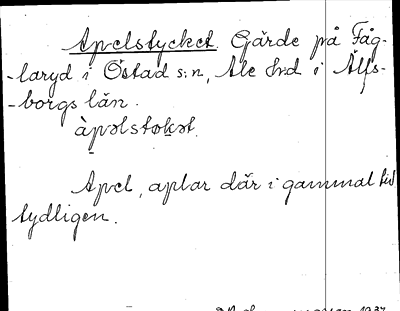 Apelstycket. Gärde på Fåg-
-laryd i Östad s:n, Ale hrd i Älfs-
-borgs län.
àpəlstək̯ət.
Apel, aplar där i gammal tid
tydligen.
1937